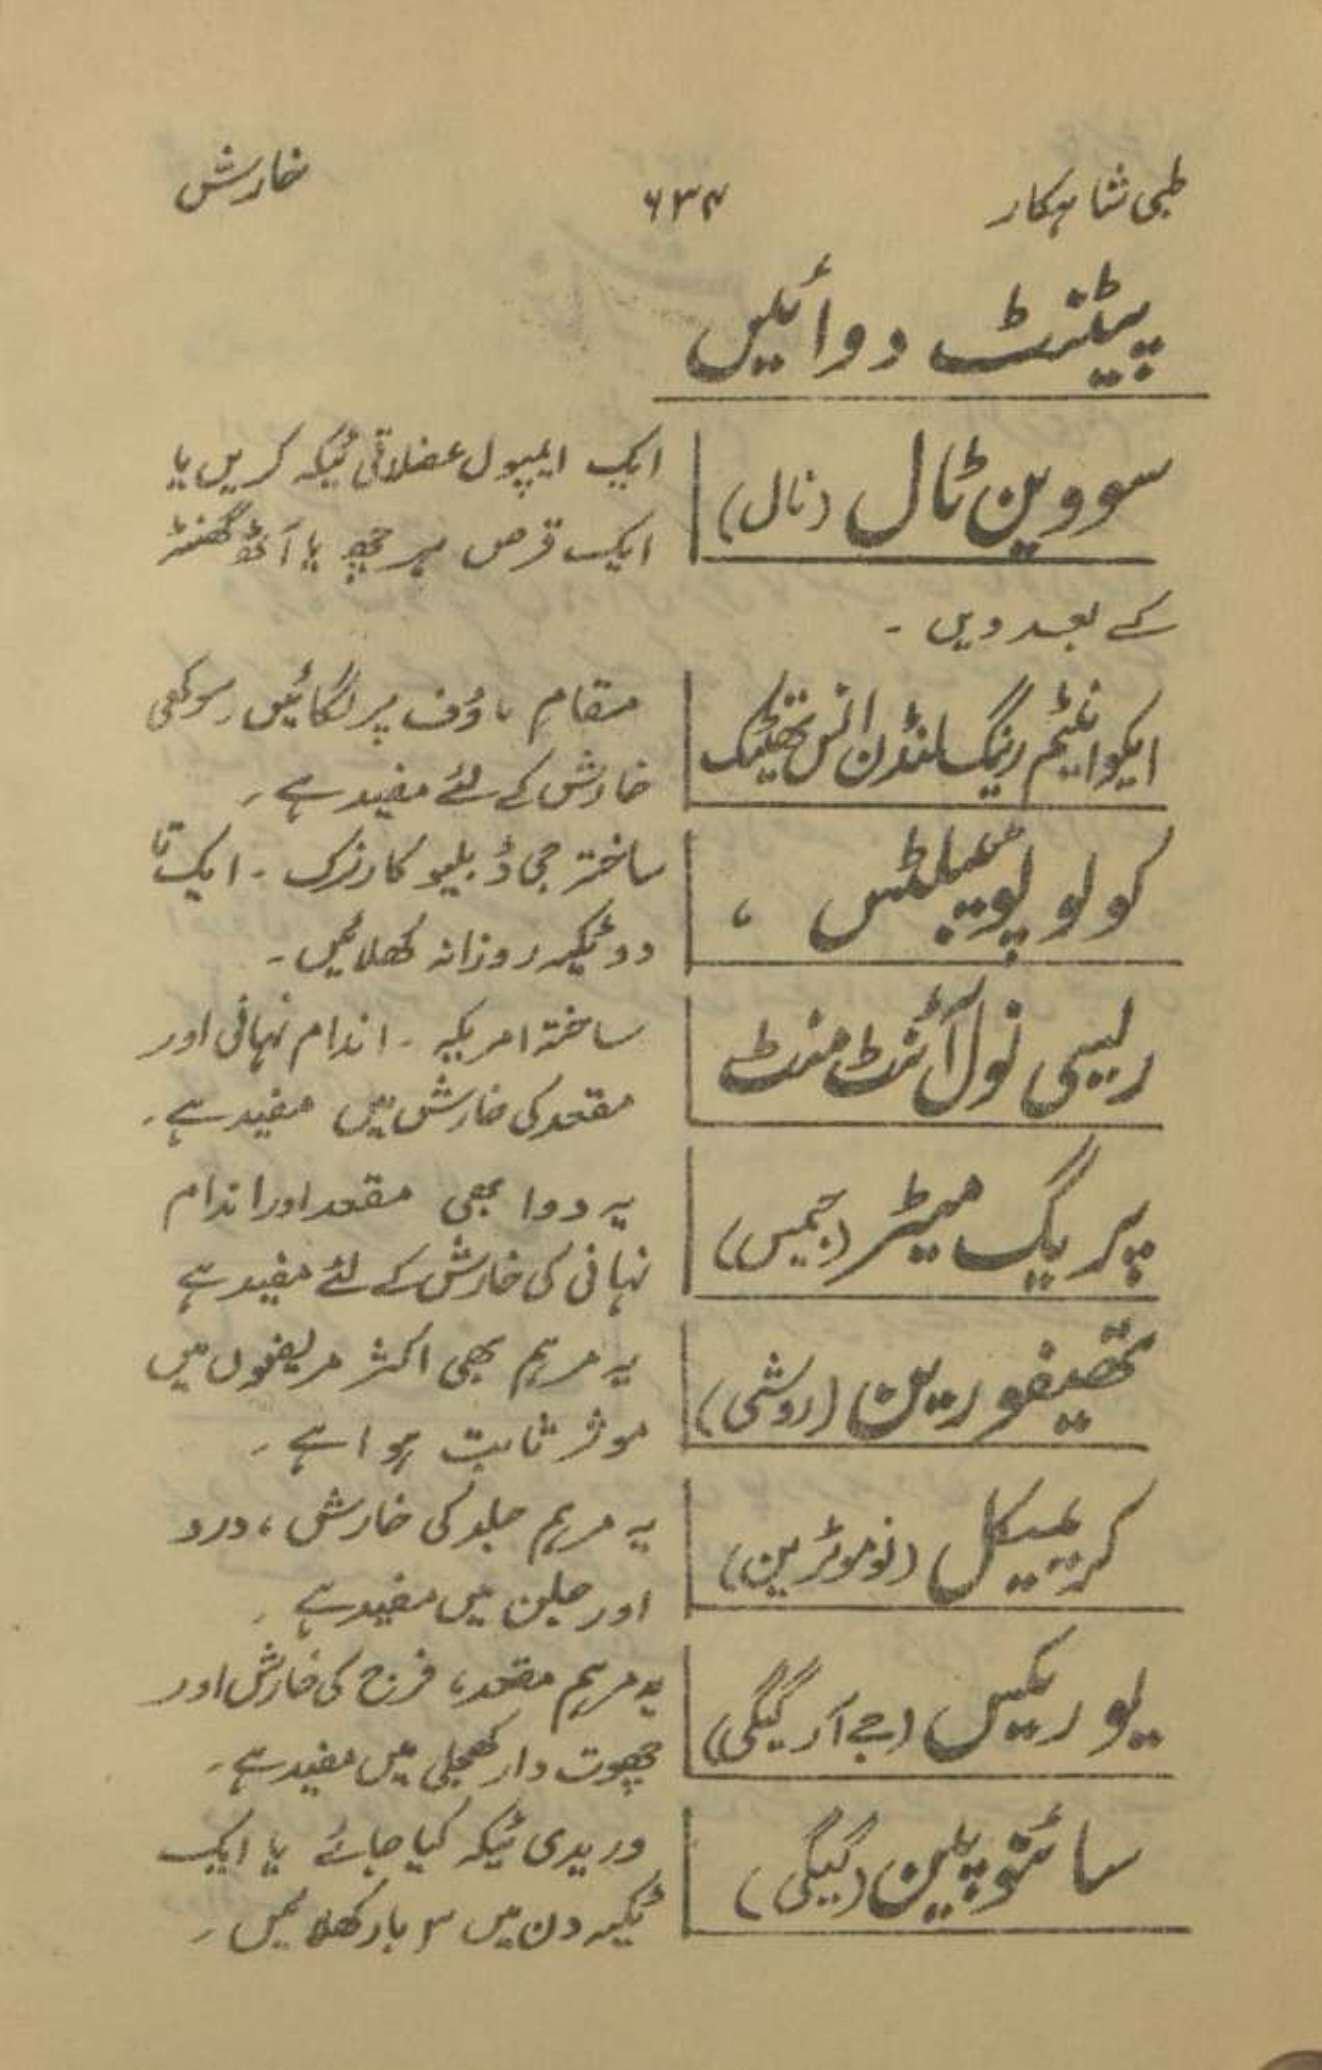 طبی شاہکار ۶۳۴ خارش
پیٹنٹ دوائیں
سووین ٹال (نال) ایک ایمپول عضلاتی ٹیکہ کریں یا
ایک قرص ہر چھ یا آٹھ گھنٹہ
کے بعد دیں ۔
ایکوانٹیم رنیگ لنڈن انس تھیٹک مقام ماؤف پر لگائیں۔ سوکھی
خارش کے لئے مفید ہے ۔
کولو پوپیلٹس ، ساختہ جی ڈبلیو کارنرک ۔ ایک تا
دو ٹیکیہ روزانہ کھلائیں ۔
ریسی نول آئنٹ منٹ ساختہ امریکہ ۔ اندام نہانی اور
مقعد کی خارش میں مفید ہے ۔
پریگ میٹر (جیمس) یہ دوا بھی مقعد اور اندام
نہانی کی خارش کے لئے مفید ہے
تھیفورین (روشی) یہ مرہم بھی اکثر مریضوں میں
موثر ثابت ہوا ہے ۔
کریمیکل (نوموٹرین) یہ مرہم جلد کی خارش ، درد
اور جلن میں مفید ہے ۔
یوریکس (جے آر گیگی) یہ مرہم مقعد، فرج کی خارش اور
چھوت دار کھجلی میں مفید ہے ۔
سائنوپلین (گیگی) وریدی ٹیکہ کیا جائے یا ایک
ٹیکیہ دن میں ۳ بار کھلائیں ۔